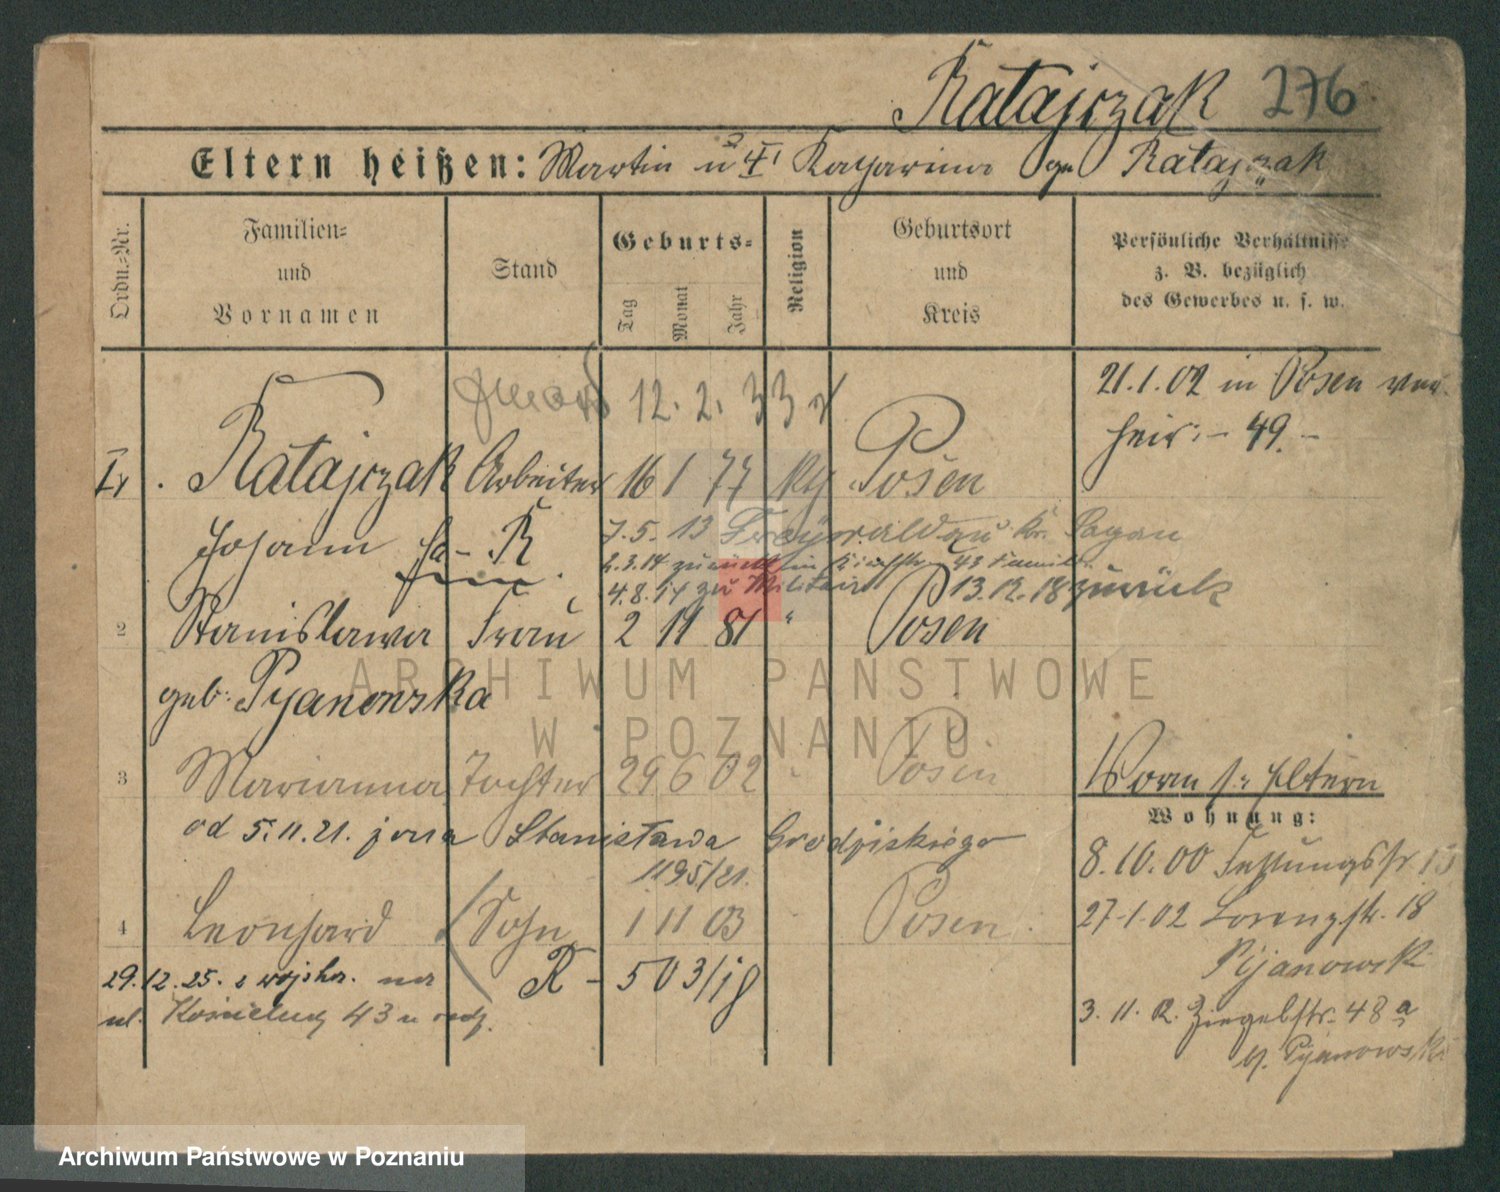 Ratajczak 276
Eltern heißen: Martin u Katharina ge Ratajczak
Ordn.-Nr.
Familien-
und
Vornamen
Stand
Geburts-
Tag
Monat
Jahr
Religion
Geburtsort
und
Kreis
Persönliche Verhältnisse
z. B. bezüglich
des Gewerbes u. s. w.
zmarł 12. 2. 33 r
21.1.02 in Posen ver-
heir. - 49. -
Ratajczak Arbeiter 16 1 77 Posen
Johann R
7.5.13 Freywaldau Kr. Sagan
2.3.14 zurück
4.8.14 zu Militair 13.12.18 zurück
2 Stanislawa Frau 2 11 81 " Posen
geb. Pyanowska
3 Marianna Tochter 29 6 02 Posen
od 5.11.21. żona Stanisława Grodziskiego
1195/21.
4 Leonhard Sohn 1 11 03 Posen
R - 503/18
29.12.25. z wojska. na
ul. 43
Worm s. Eltern
Wohnung:
8.10.00 Festungsstr. 15
27.1.02 Lorenzstr. 18
Pijanowski
3. 11. Ziegelstr. 48 a
b/. Pyanowski
ARCHIWUM PAŃSTWOWE
W POZNANIU
Archiwum Państwowe w Poznaniu